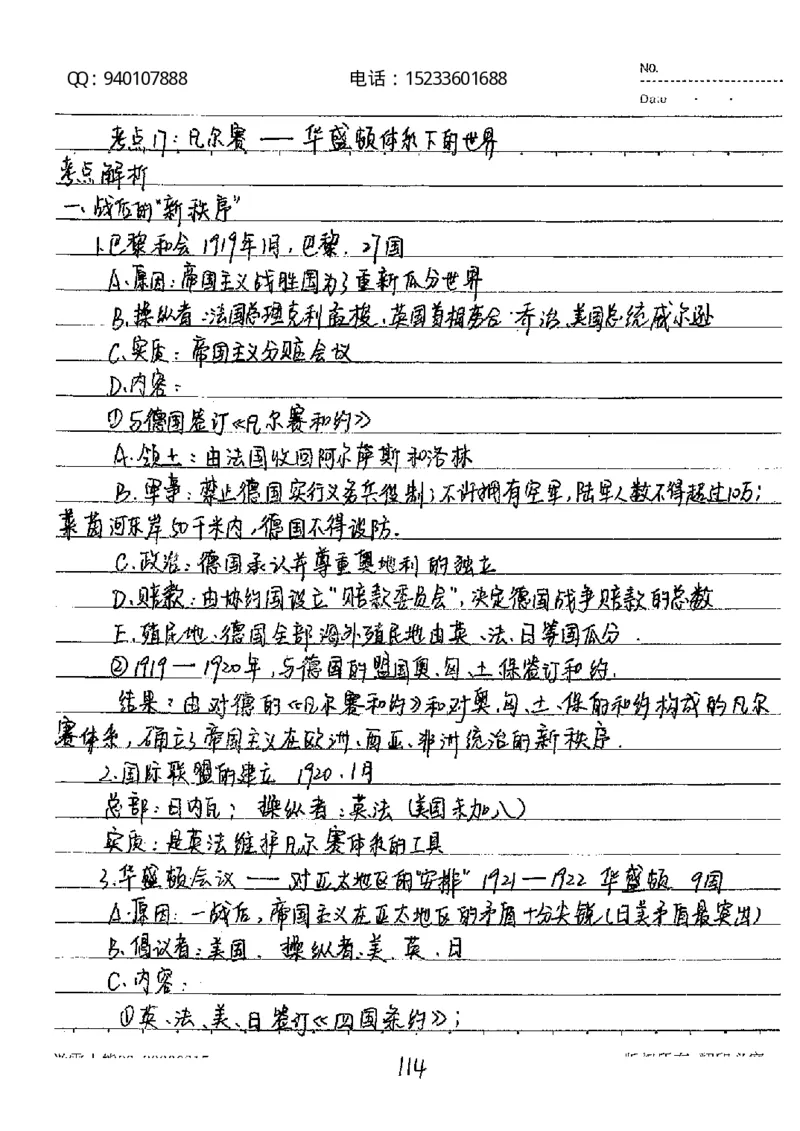 QQ：940107888
电话：15233601688
No.
Date
考点17：凡尔赛——华盛顿体系下的世界
考点解析
一、战后的"新秩序"
1.巴黎和会 1919年1月，巴黎．27国
A.原因：帝国主义战胜国为了重新瓜分世界
B.操纵者：法国总理克利孟梭，英国首相劳合·乔治、美国总统威尔逊
C.实质：帝国主义分赃会议
D.内容：
①与德国签订《凡尔赛和约》
A.领土：由法国收回阿尔萨斯和洛林
B.军事：禁止德国实行义务兵役制；不许拥有空军，陆军人数不得超过10万；
莱茵河东岸50千米内，德国不得设防．
C.政治：德国承认并尊重奥地利的独立
D.赔款：由协约国设立"赔款委员会"，决定德国战争赔款的总数
E.殖民地、德国全部海外殖民地由英、法、日等国瓜分．
②1919—1920年，与德国的盟国奥、匈、土、保签订和约，
结果：由对德的《凡尔赛和约》和对奥、匈、土、保的和约构成的凡尔
赛体系，确立了帝国主义在欧洲、西亚、非洲统治的新秩序．
2.国际联盟的建立 1920.1月
总部：日内瓦； 操纵者：英法（美国未加入）
实质：是英法维护凡尔赛体系的工具
3.华盛顿会议——对亚太地区的"安排" 1921—1922 华盛顿 9国
A.原因：一战后，帝国主义在亚太地区的矛盾十分尖锐（日美矛盾最突出）
B.倡议者：美国． 操纵者：美、英、日
C.内容：
①英、法、美、日签订《四国条约》；
114